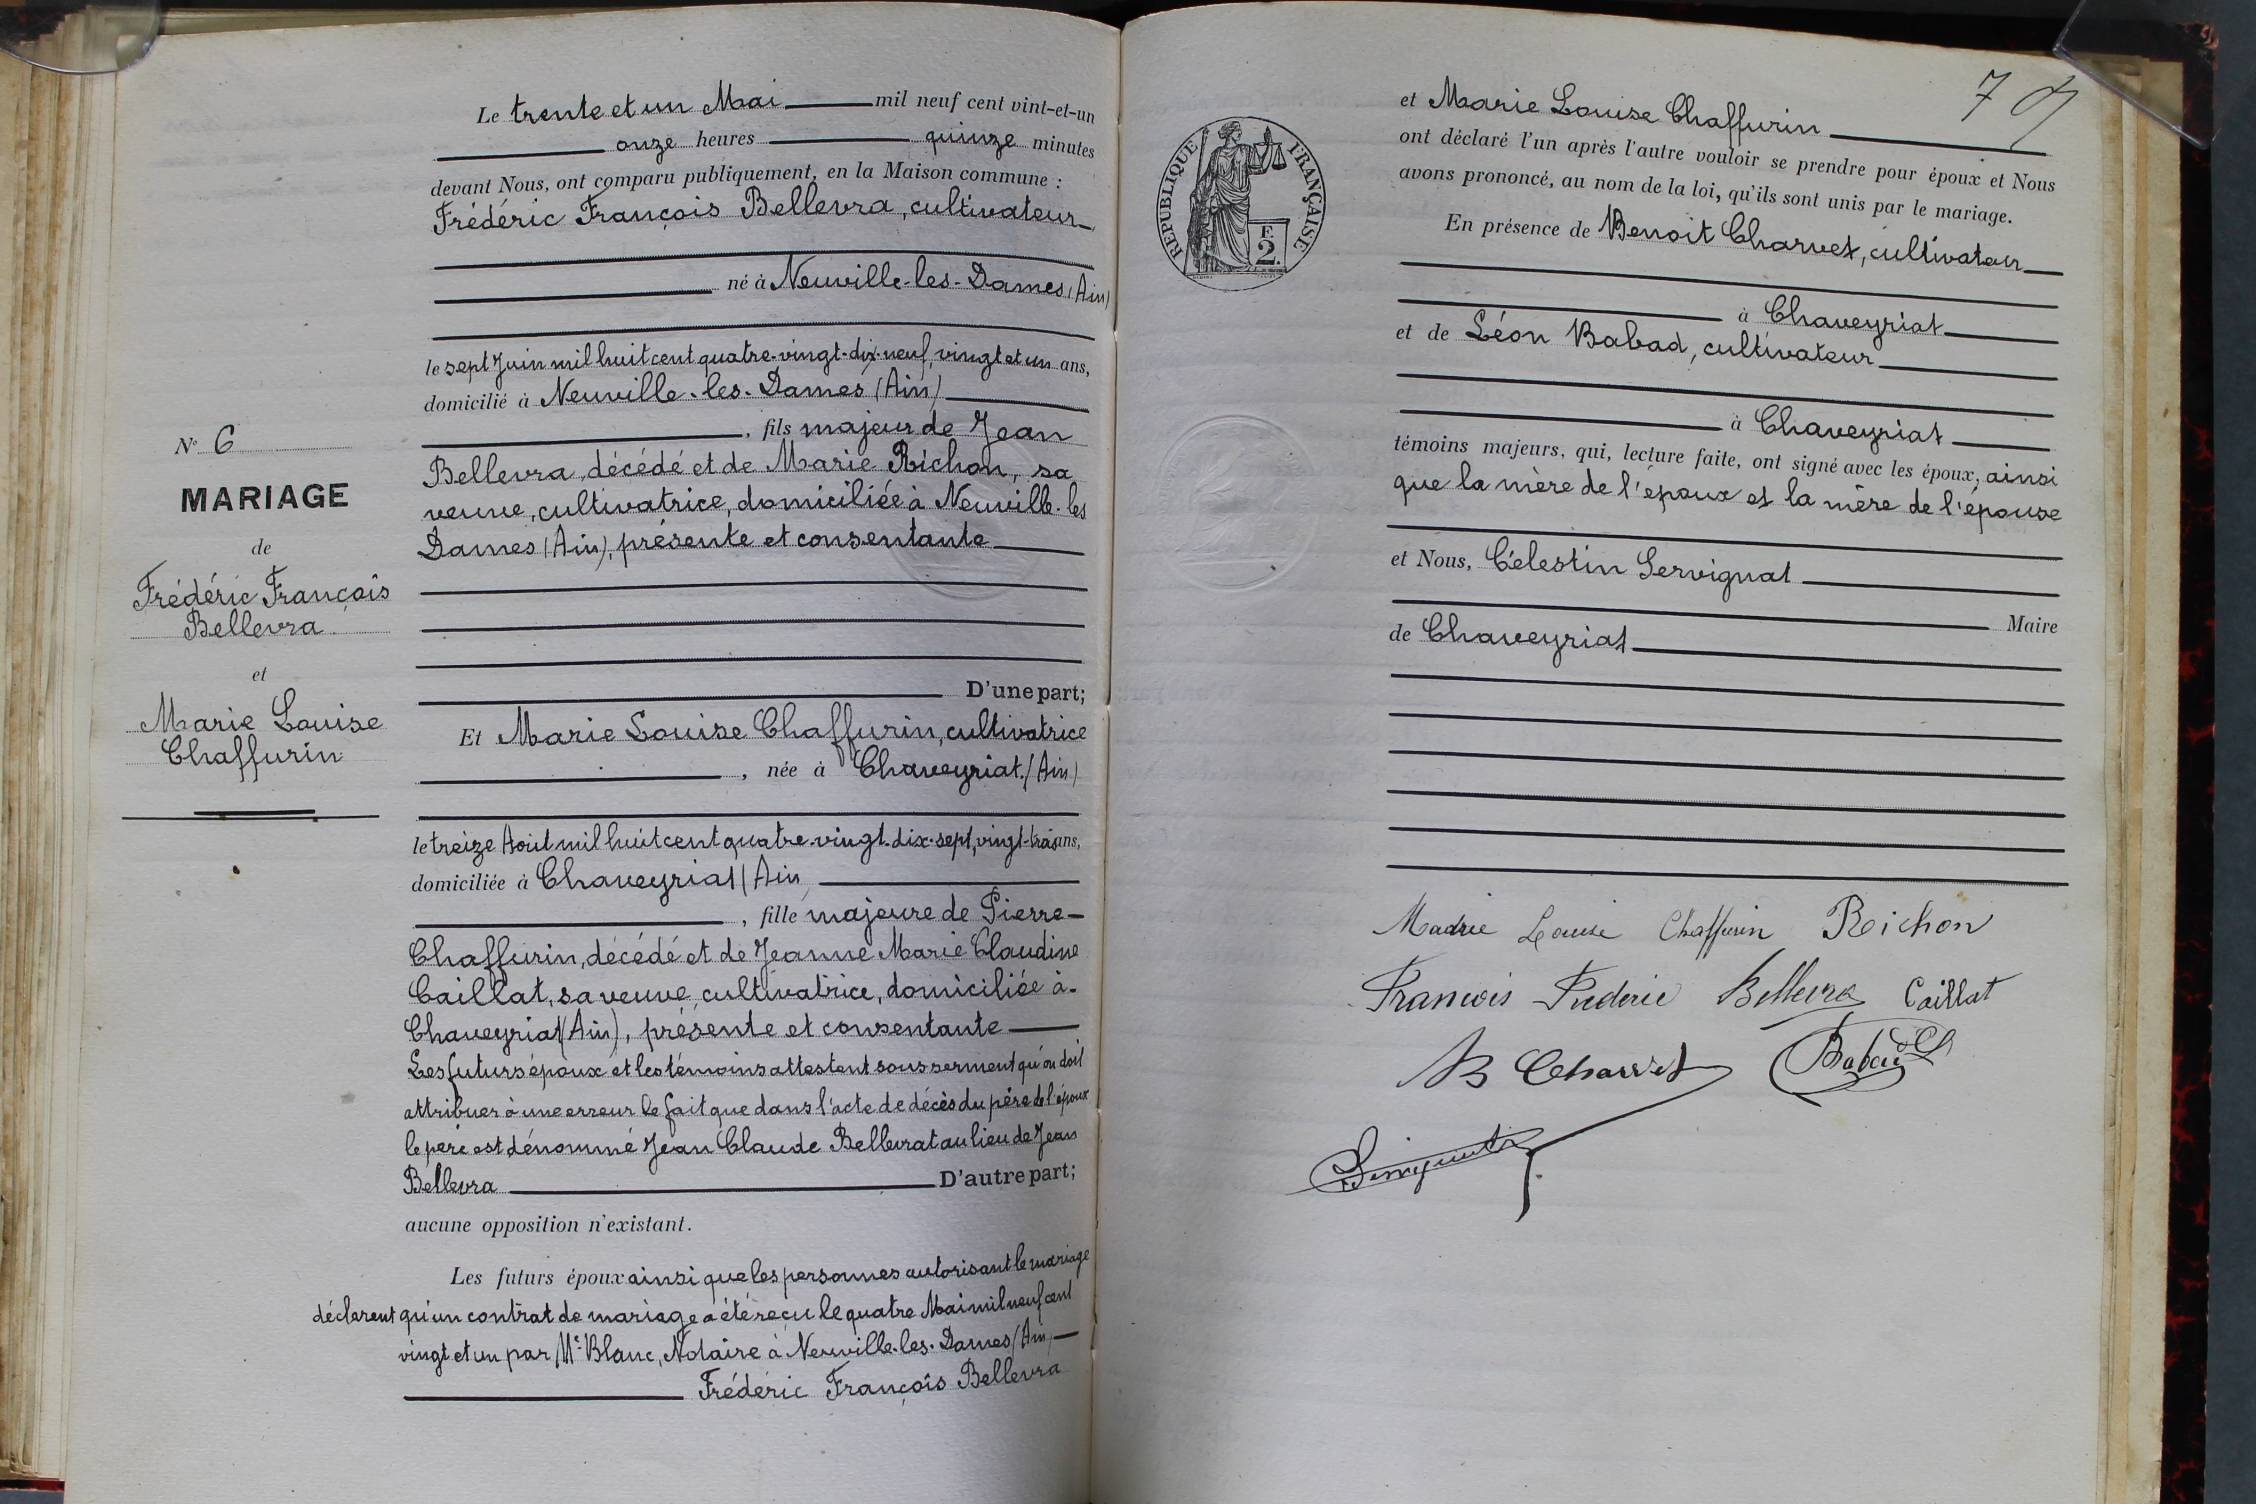 Le trente et un Mai mil neuf cent vint-et-un
onze heures quinze minutes
devant Nous, ont comparu publiquement, en la Maison commune :
Frédéric François Bellevra, cultivateur
né à Neuville-les-Dames (Ain)
le sept Juin mil huit cent quatre-vingt-dix-neuf, vingt et un ans,
domicilié à Neuville-les-Dames (Ain)
, fils majeur de Jean
Bellevra, décédé et de Marie Richon, sa
veuve, cultivatrice, domiciliée à Neuville-les
Dames (Ain), présente et consentante
D'une part;
Et Marie Louise Chaffurin, cultivatrice
, née à Chaveyriat (Ain)
le treize Août mil huit cent quatre-vingt-dix-sept, vingt-trois ans,
domiciliée à Chaveyriat (Ain
, fille majeure de Pierre-
Chaffurin, décédé et de Jeanne Marie Claudine
Caillat, sa veuve, cultivatrice, domiciliée à-
Chaveyriat (Ain), présente et consentante
Les futurs époux et les témoins attestent sous serment qu'on doit
attribuer à une erreur le fait que dans l'acte de décès du père de l'époux
le père est dénommé Jean Claude Bellevrat au lieu de Jean
Bellevra D'autre part;
aucune opposition n'existant.
Les futurs époux ainsi que les personnes autorisant le mariage
déclarent qu'un contrat de mariage a été reçu le quatre Mai mil neuf cent
vingt et un par Me Blanc, Notaire à Neuville-les-Dames (Ain)
Frédéric François Bellevra
N° 6
MARIAGE
de
Frédéric François
Bellevra
et
Marie Louise
Chaffurin
7
RÉPUBLIQUE FRANÇAISE
F.
2.
et Marie Louise Chaffurin
ont déclaré l'un après l'autre vouloir se prendre pour époux et Nous
avons prononcé, au nom de la loi, qu'ils sont unis par le mariage.
En présence de Benoit Charvet, cultivateur
à Chaveyriat
et de Léon Babad, cultivateur
à Chaveyriat
témoins majeurs, qui, lecture faite, ont signé avec les époux, ainsi
que la mère de l'époux et la mère de l'épouse
et Nous, Célestin Servignat
Maire
de Chaveyriat
Marie Louise Chaffurin Richon
François Frederic Bellevra Caillat
B Charvet Babad
Servignat